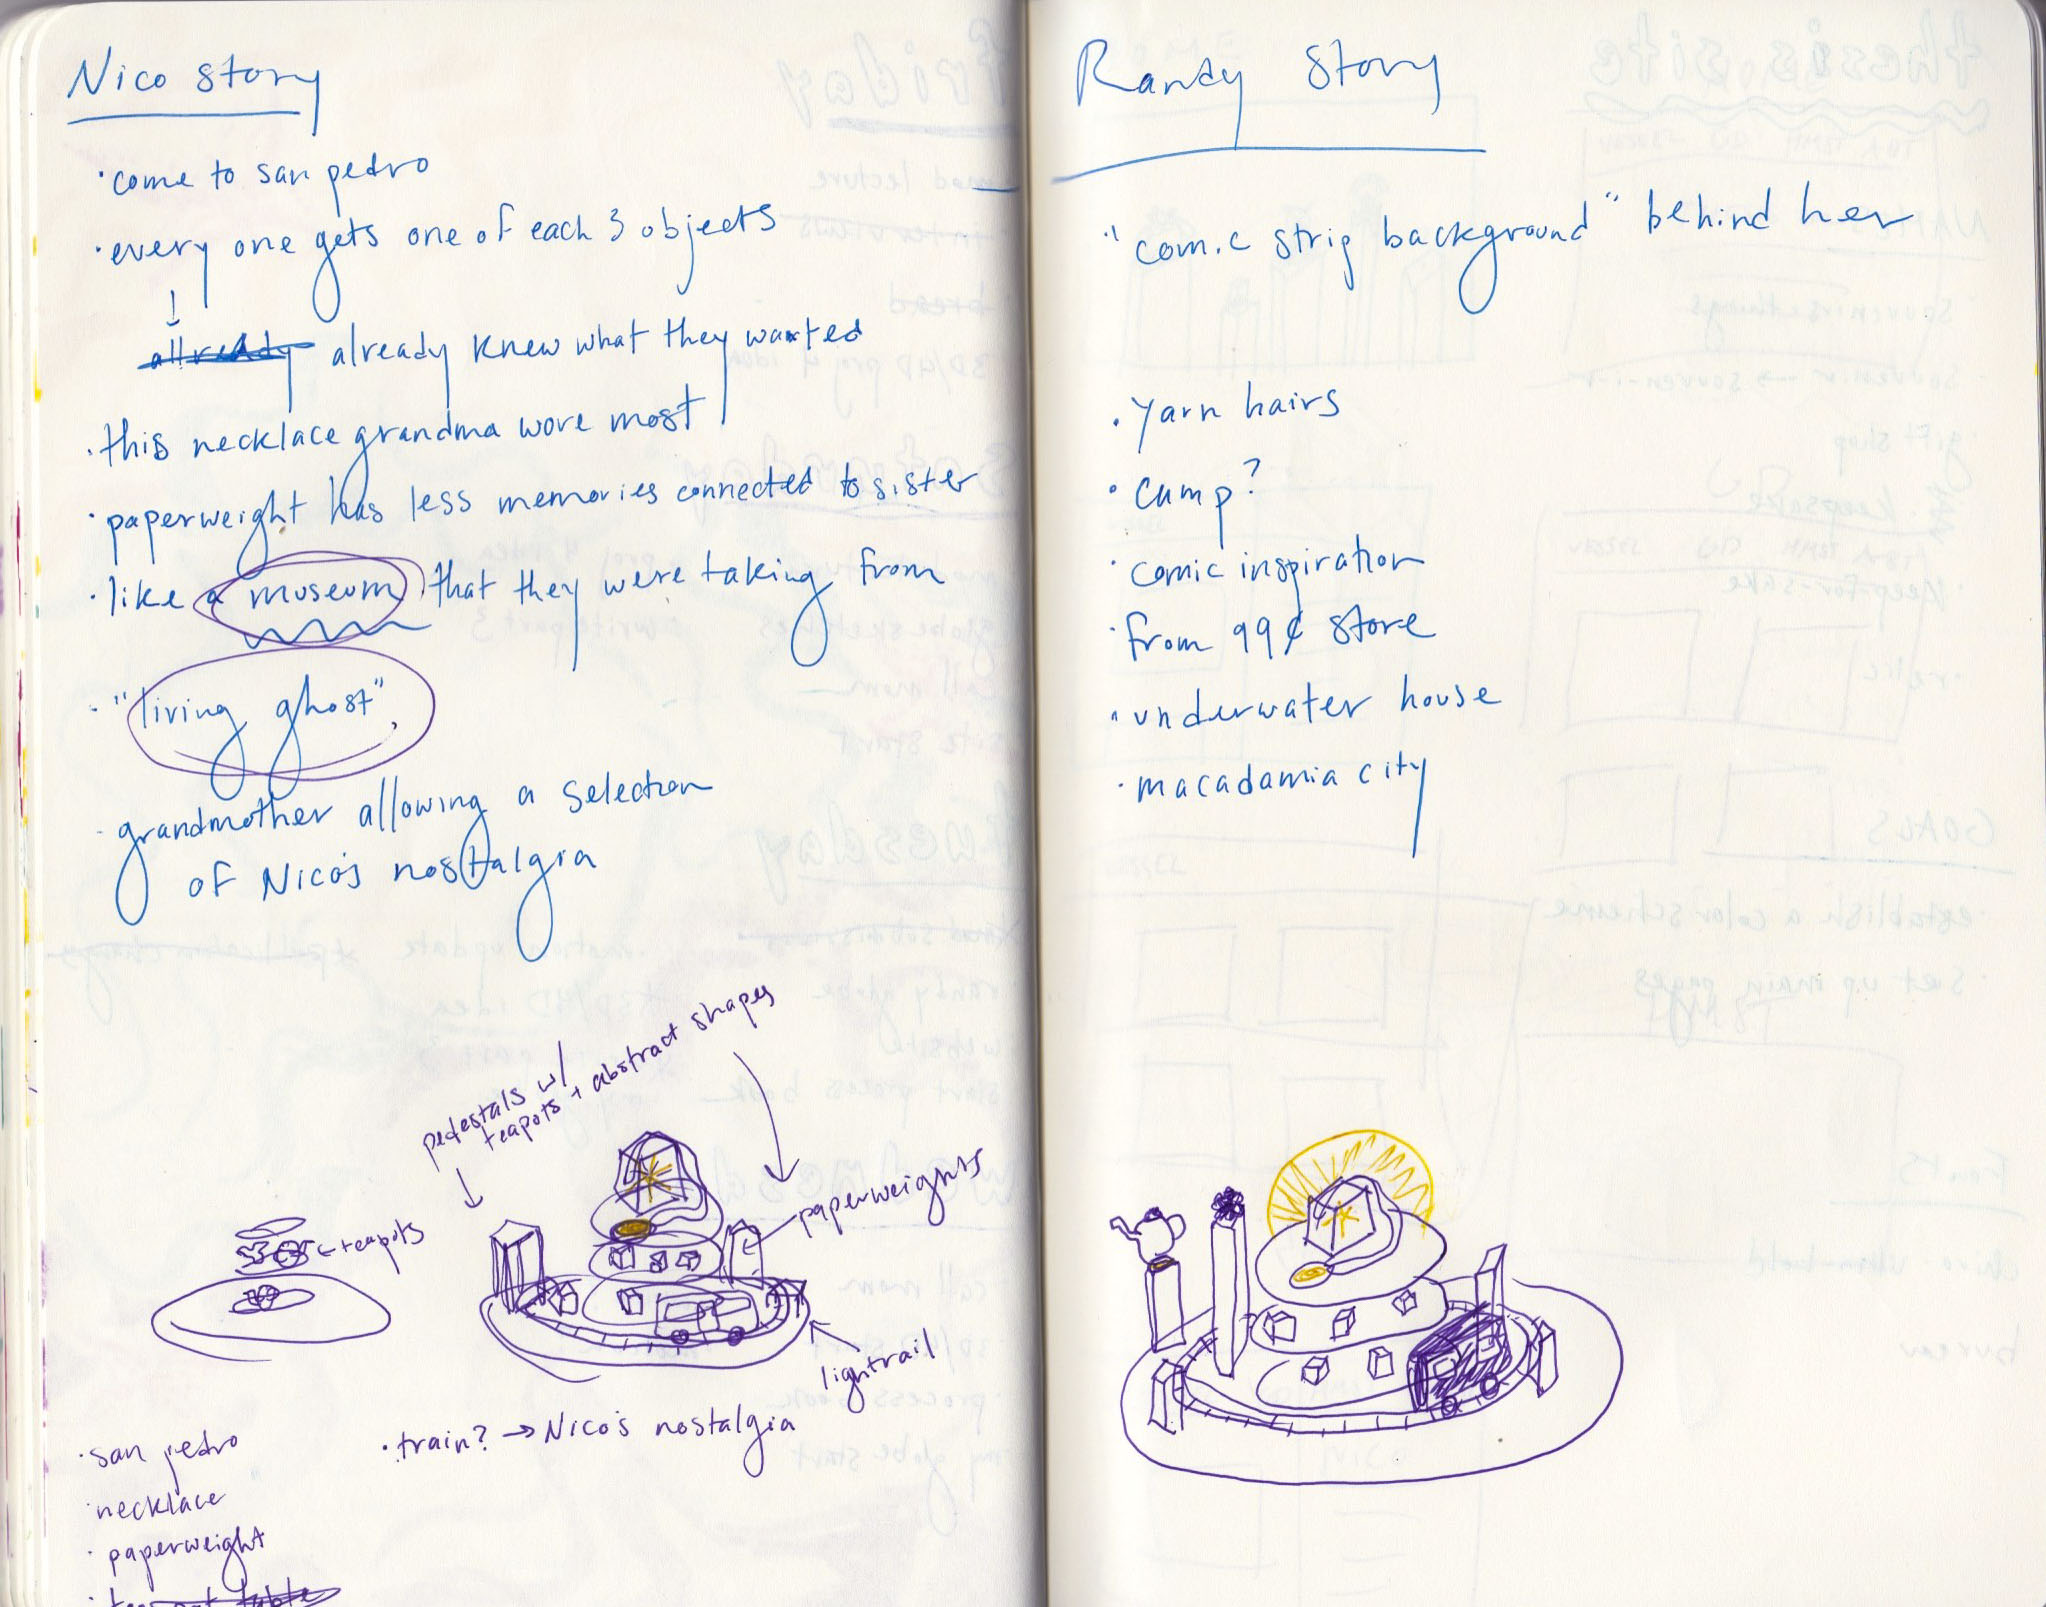 Nico story
·come to san pedro
·every one gets one of each 3 objects
allready already knew what they wanted
·this necklace grandma wore most
·paperweight has less memories connected to sister
·like a museum that they were taking from
·"living ghost"
·grandmother allowing a selection
of Nico's nostalgia
pedestals w/
teapots + abstract shapes
teapots
paperweights
lightrail
·train? → Nico's nostalgia
·san pedro
·necklace
·paperweight
Randy Story
"comic strip background" behind her
·yarn hairs
·camp?
·comic inspiration
·from 99¢ store
·underwater house
·macadamia city